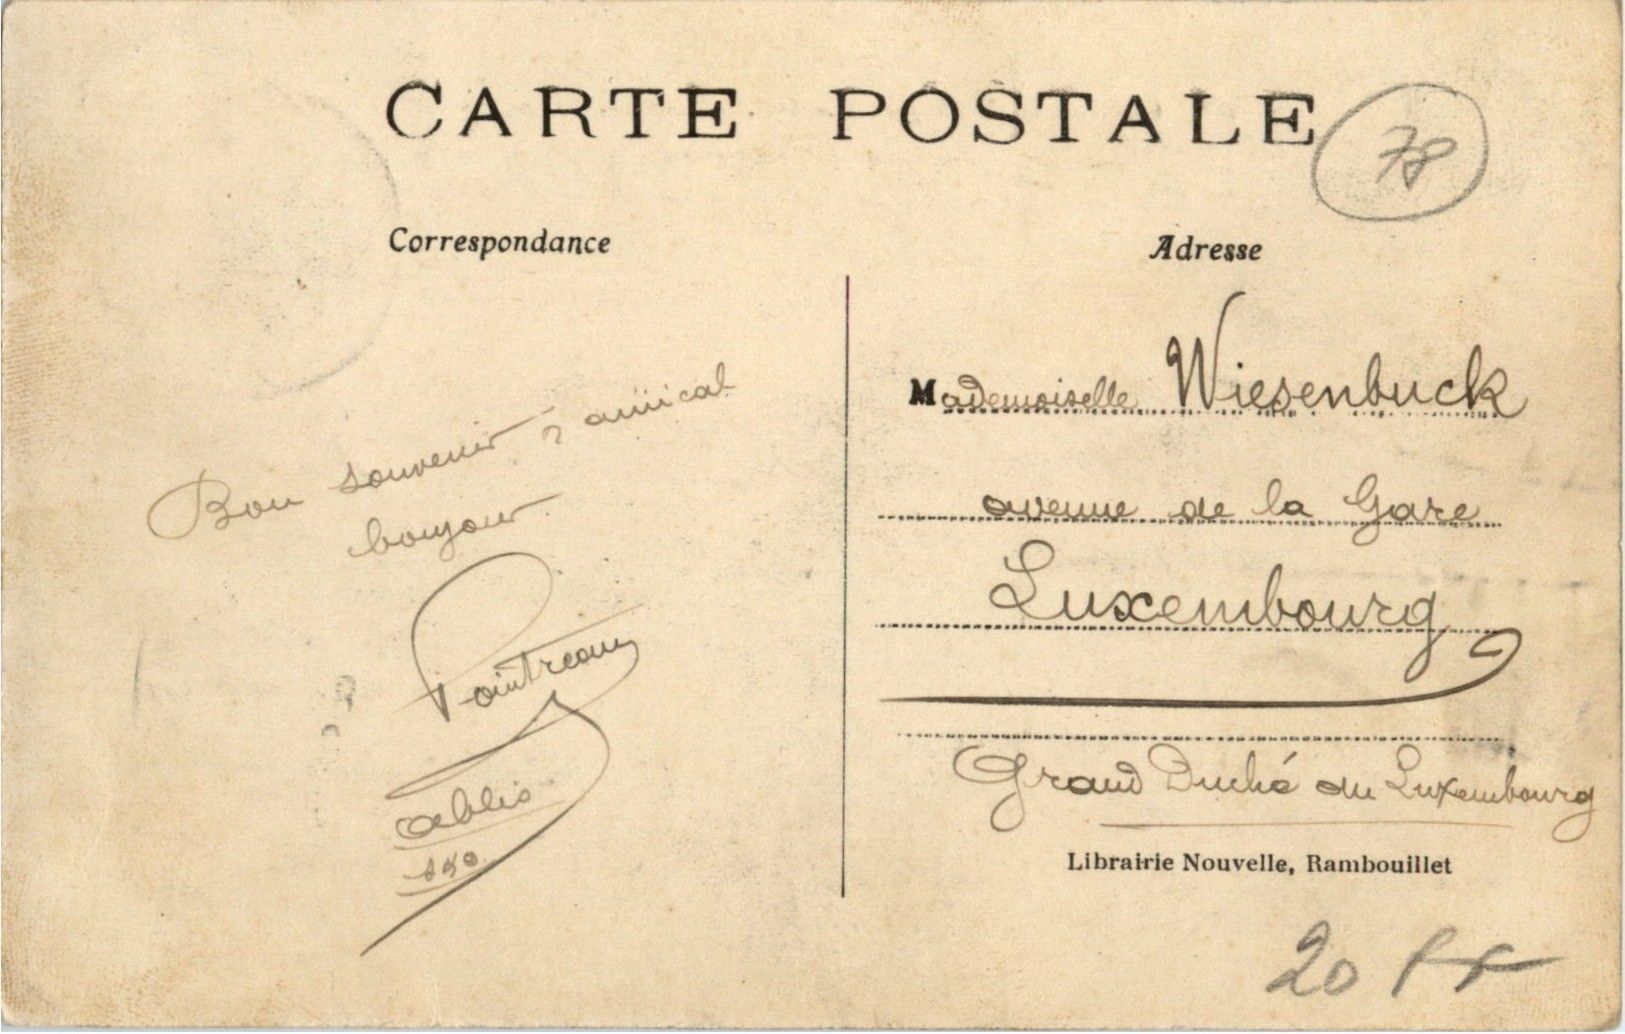 CARTE POSTALE
78
Correspondance
Adresse
Bon souvenir & amical
bonjour
Pointreau
Ablis
Mademoiselle Wiesenbuck
avenue de la Gare
Luxembourg
Grand Duché du Luxembourg
Librairie Nouvelle, Rambouillet
20 ff